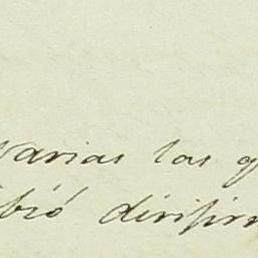 Varias las q
ibió dirisir